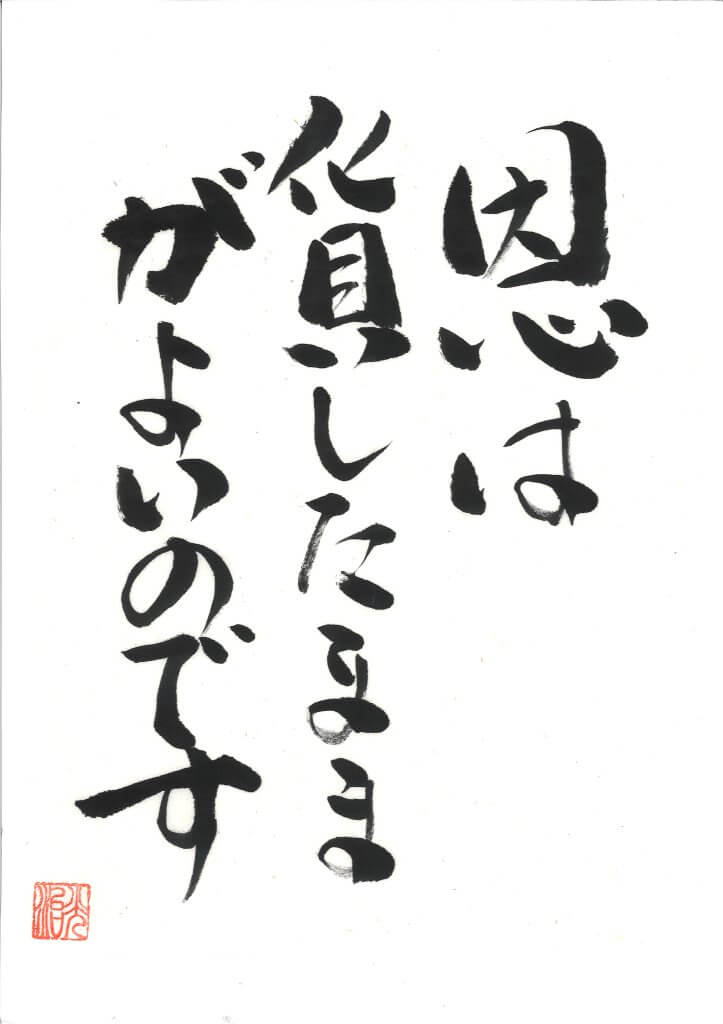 恩は
貸したまま
がよいのです